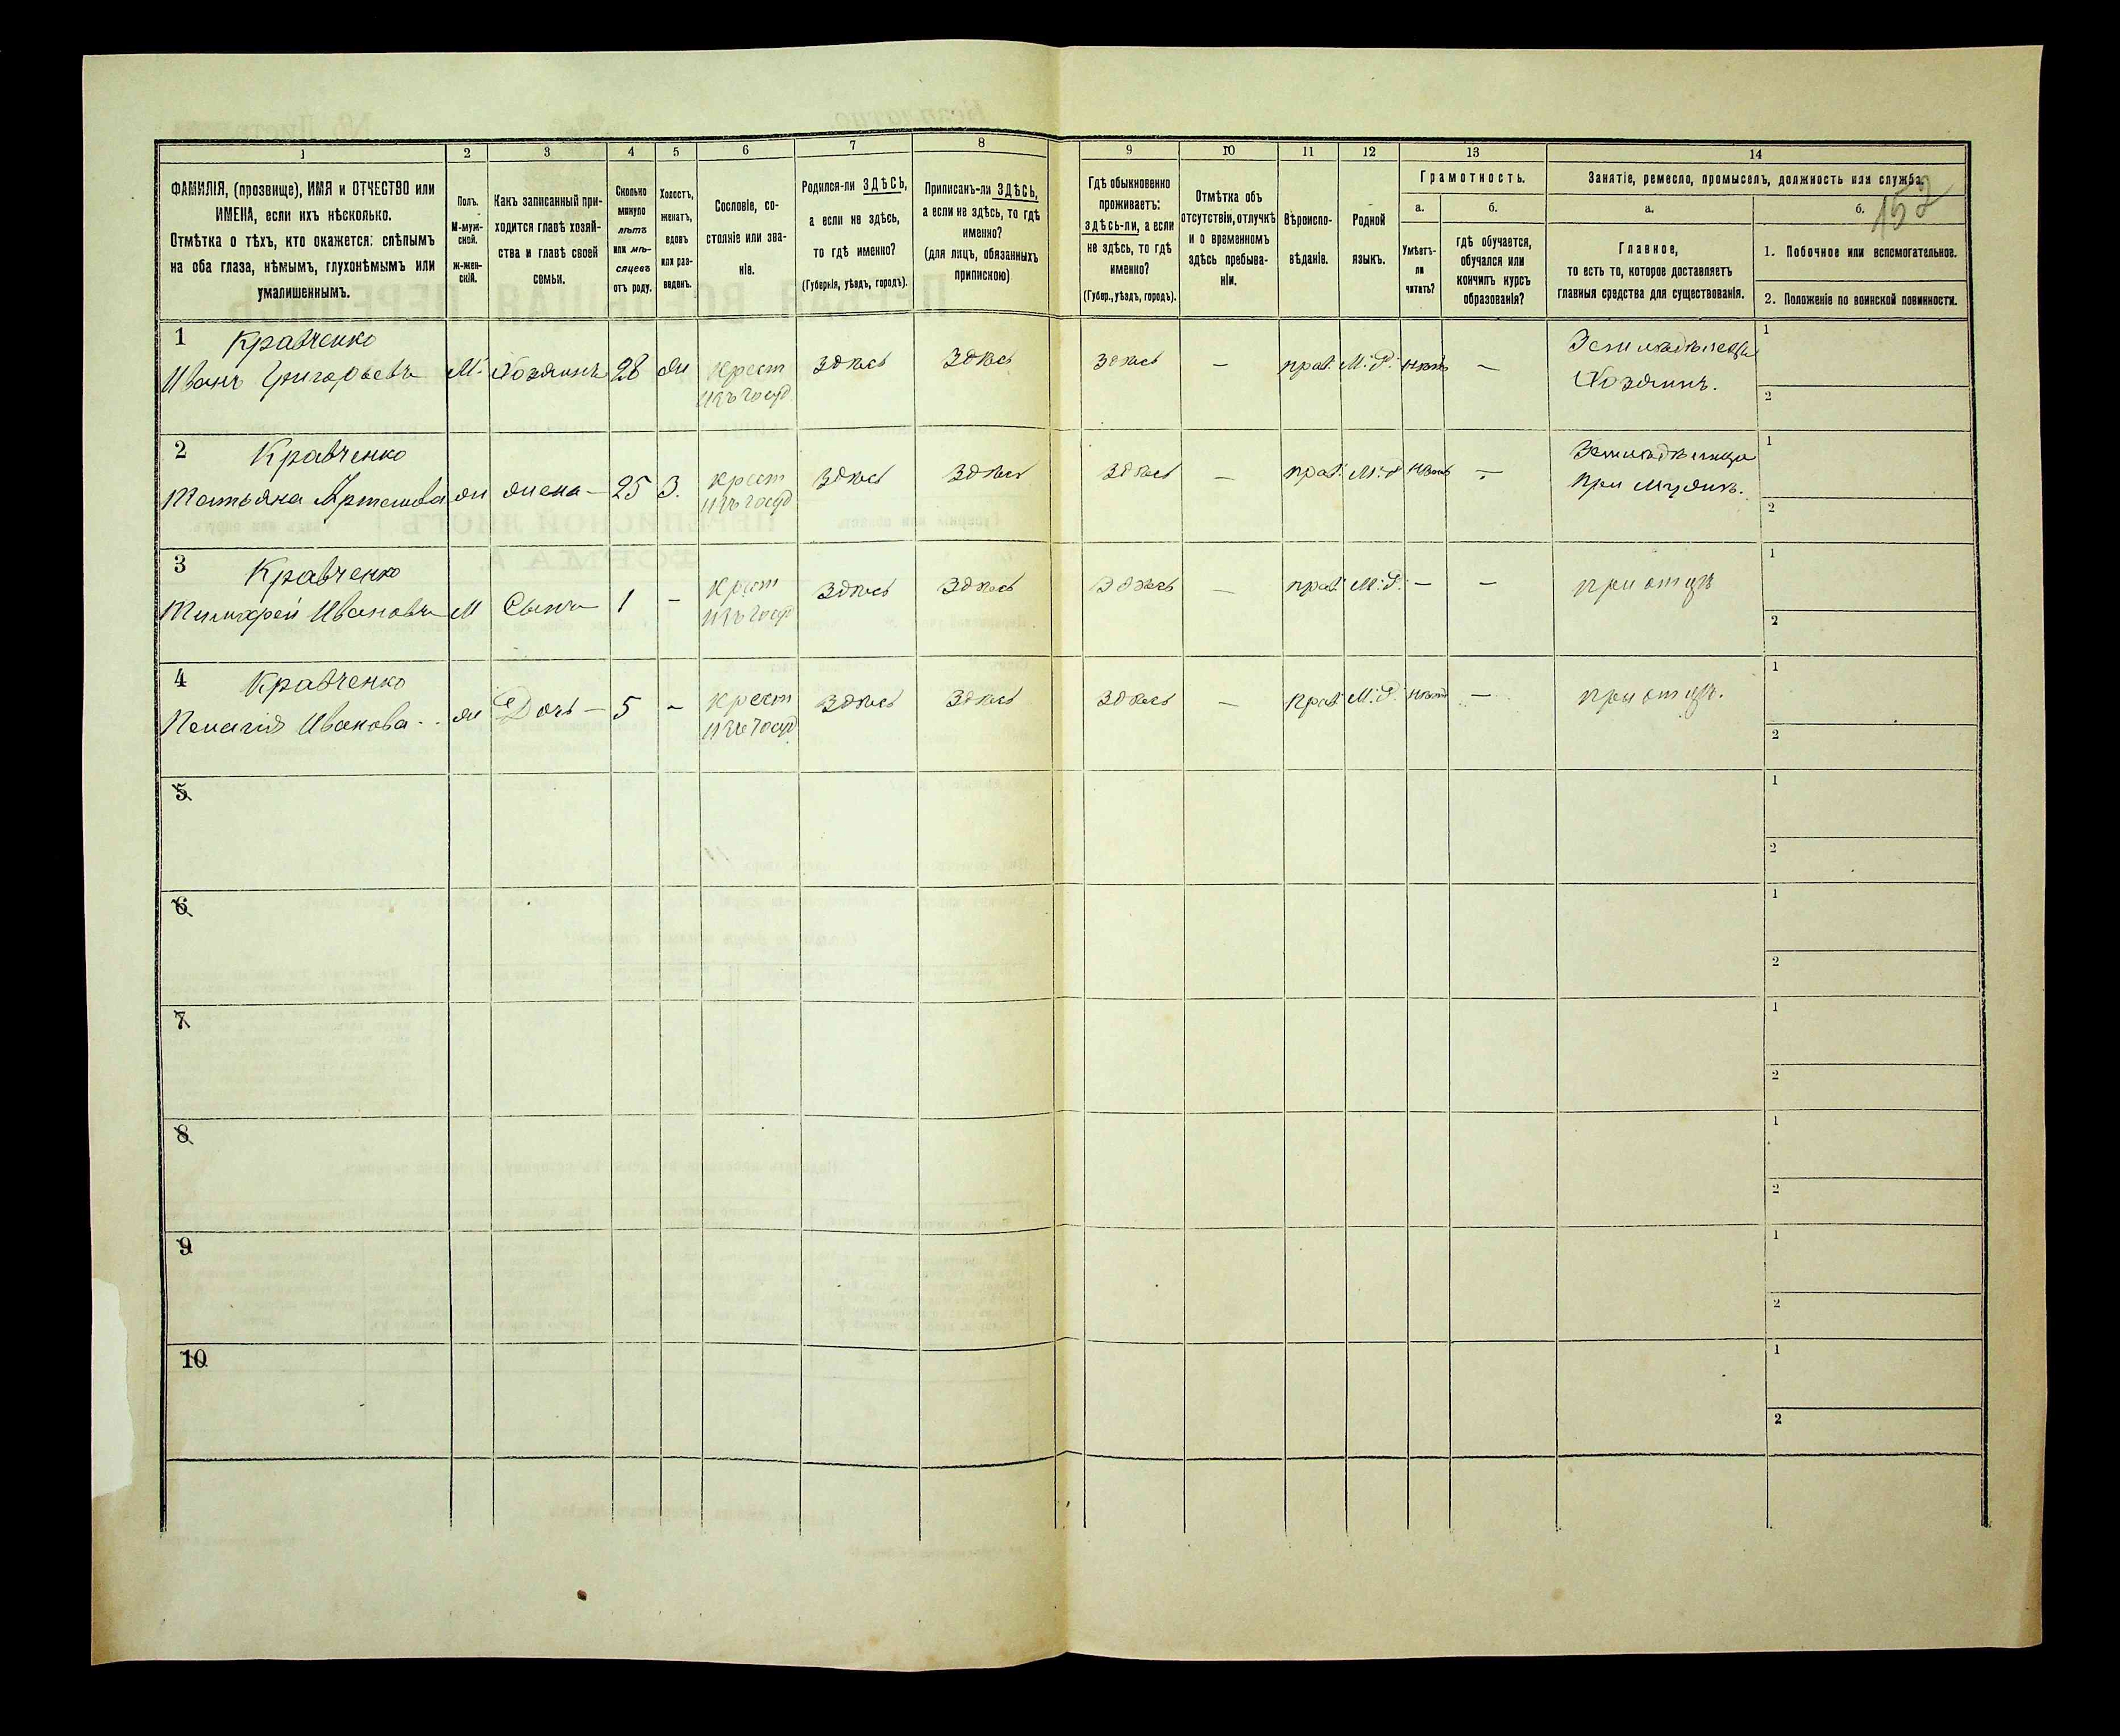 152
1 2 3 4 5 6 7 8 9 10 11 12 13 14
ФАМИЛІЯ, (прозвище), ИМЯ и ОТЧЕСТВО или
ИМЕНА, если ихъ нѣсколько.
Отмѣтка о тѣхъ, кто окажется: слѣпымъ
на оба глаза, нѣмымъ, глухонѣмымъ или
умалишеннымъ.
Полъ.
М-муж-
ской.
ж-жен-
скій.
Какъ записанный при-
ходится главѣ хозяй-
ства и главѣ своей
семьи.
Сколько
минуло
лѣтъ
или мѣ-
сяцевъ
отъ роду.
Холостъ,
женатъ,
вдовъ
или раз-
веденъ.
Сословіе, со-
стояніе или зва-
ніе.
Родился-ли ЗДѢСЬ,
а если не здѣсь,
то гдѣ именно?
(Губернія, уѣздъ, городъ).
Приписанъ-ли ЗДѢСЬ,
а если не здѣсь, то гдѣ
именно?
(для лицъ, обязанныхъ
припискою)
Гдѣ обыкновенно
проживаетъ:
здѣсь-ли, а если
не здѣсь, то гдѣ
именно?
(Губер., уѣздъ, городъ).
Отмѣтка объ
отсутствіи, отлучкѣ
и о временномъ
здѣсь пребыва-
ніи.
Вѣроиспо-
вѣданіе.
Родной
языкъ.
Грамотность.
а.
Умѣетъ-
ли
читать?
б.
гдѣ обучается,
обучался или
кончилъ курсъ
образованія?
Занятіе, ремесло, промыселъ, должность или служба.
а.
Главное,
то есть то, которое доставляетъ
главныя средства для существованія.
б.
1. Побочное или вспомогательное.
2. Положеніе по воинской повинности.
1 Кравченко Земледѣлецъ 1
Иванъ Григорьевъ М. Хозяинъ 28 жн Крест Здѣсь Здѣсь Здѣсь — прав. М.Р. нѣтъ — Хозяинъ.
изъ госуд 2
2 Кравченко 1
Татьяна Артемова ж жена — 25 З. крест Здѣсь Здѣсь Здѣсь — прав. М.Р нѣтъ — При мужѣ.
изъ госуд 2
3 Кравченко 1
Тимофей Ивановъ М Сынъ 1 — Крест Здѣсь Здѣсь Здѣсь — прав. М.Р. — — при отцѣ
изъ госуд 2
4 Кравченко 1
Пелагія Иванова ж Дочь — 5 - Крест Здѣсь Здѣсь Здѣсь — Прав. М.Р. нѣтъ — при отцѣ.
изъ госуд 2
5 1
2
6 1
2
7 1
2
8 1
2
9 1
2
10 1
2